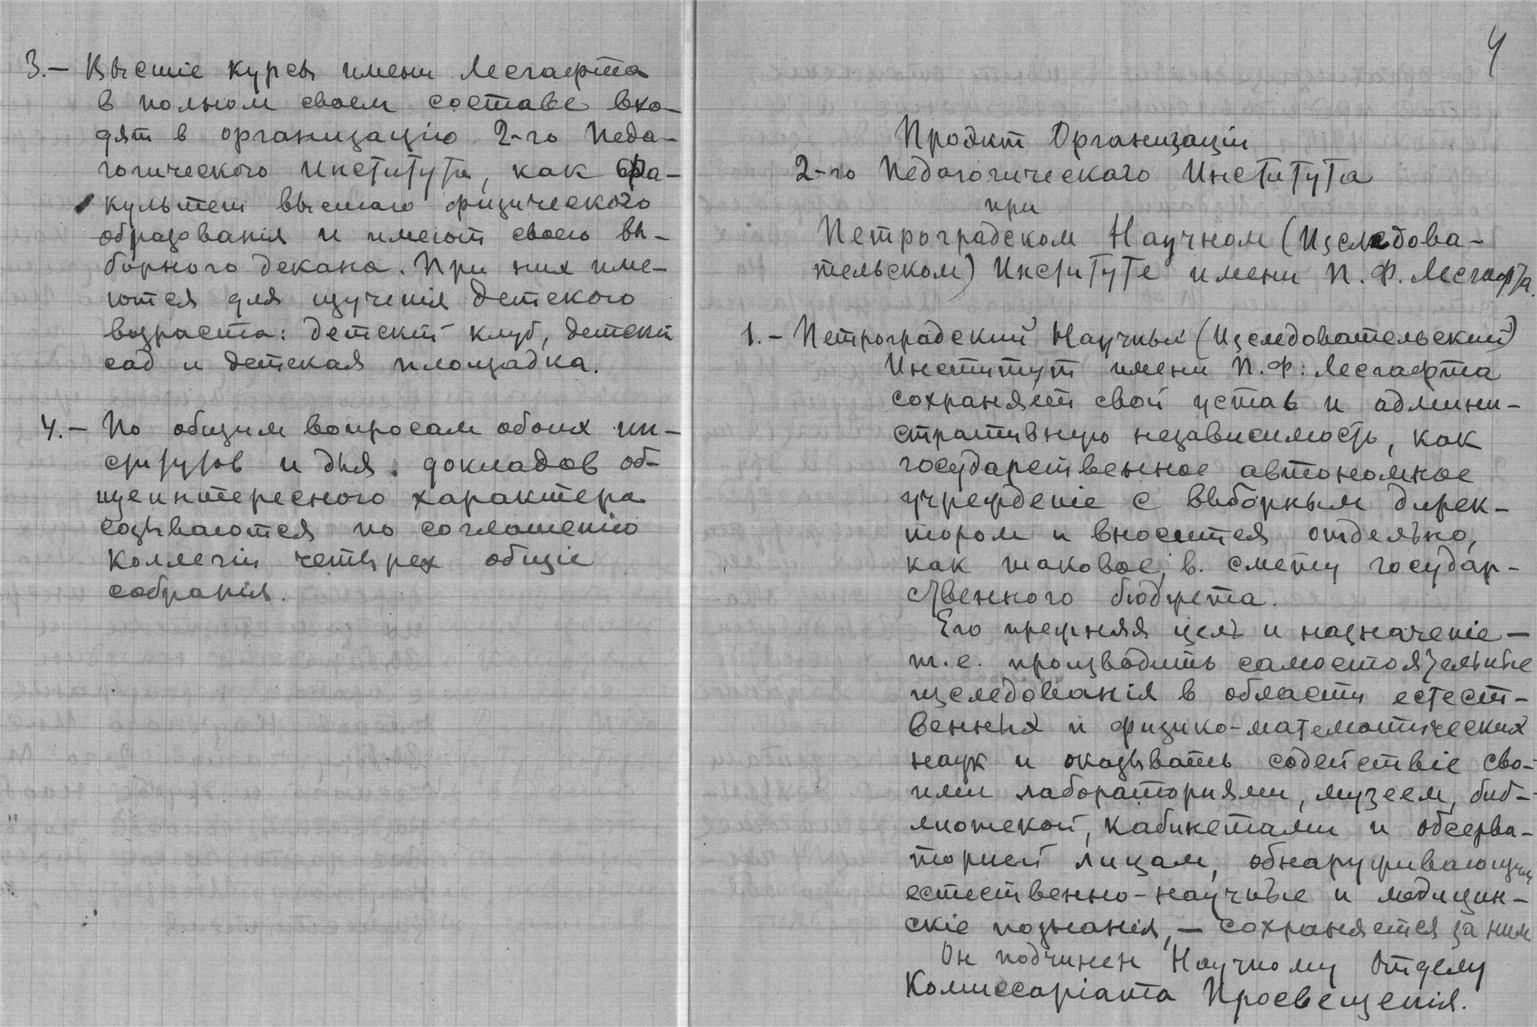 3.— Высшіе курсы имени Лесгафта
в полном своем составе вхо-
дят в организацію 2-го Педа-
гогического Института, как фа-
культет высшаго физического
образованія и имеют своего вы-
борного декана. При них име-
ются для изученія детского
возраста: детскій клуб, детскій
сад и детская площадка.
4.— По общим вопросам обоих ин-
ститутов и для докладов об-
щеинтересного характера
созываются по соглашенію
Коллегіи четырех общіе
собранія.
4
Проэкт Организаціи
2-го Педагогическаго Института
при
Петроградском Научном (Изследова-
тельском) Институте имени П. Ф. Лесгафта.
1.— Петроградский Научный (Изследовательский)
Институт имени П. Ф. Лесгафта
сохраняет свой устав и админи-
стративную независимость, как
государственное автономное
учрежденіе с выборным дирек-
тором и вносится отдельно,
как таковое, в смету государ-
ственного бюджета.
Его прежняя цель и назначеніе —
т.е. производить самостоятельные
изследованія в области естест-
венных и физико-математических
наук и оказывать содействіе сво-
ими лабораториями, музеем, биб-
лиотекой, кабинетами и обсерва-
торией лицам, обнаруживающим
естественно-научные и медицин-
скіе познанія, — сохраняется за ним.
Он подчинен Научному Отделу
Комиссаріата Просвещенія.